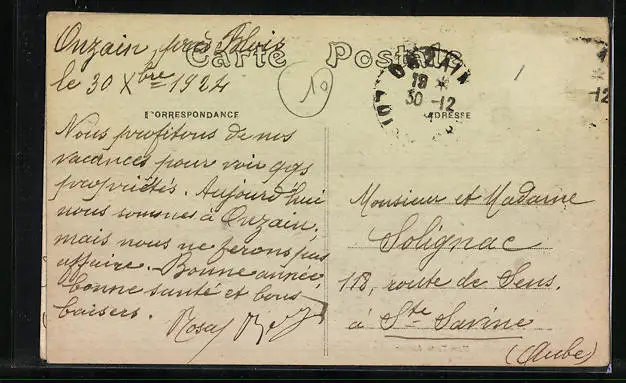 Onzain, près Blois
le 30 Xbre 1924
Carte Postale
10
ONZAIN
19 *
30 -12
CORRESPONDANCE
ADRESSE
Nous profitons de nos
vacances pour voir qqs
propriétés. Aujourd'hui
nous sommes à Onzain,
mais nous ne ferons pas
affaire. Bonne année,
bonne santé et bons
baisers.
Monsieur et Madame
Solignac
118, route de Sens.
à Ste Savine
(Aube)